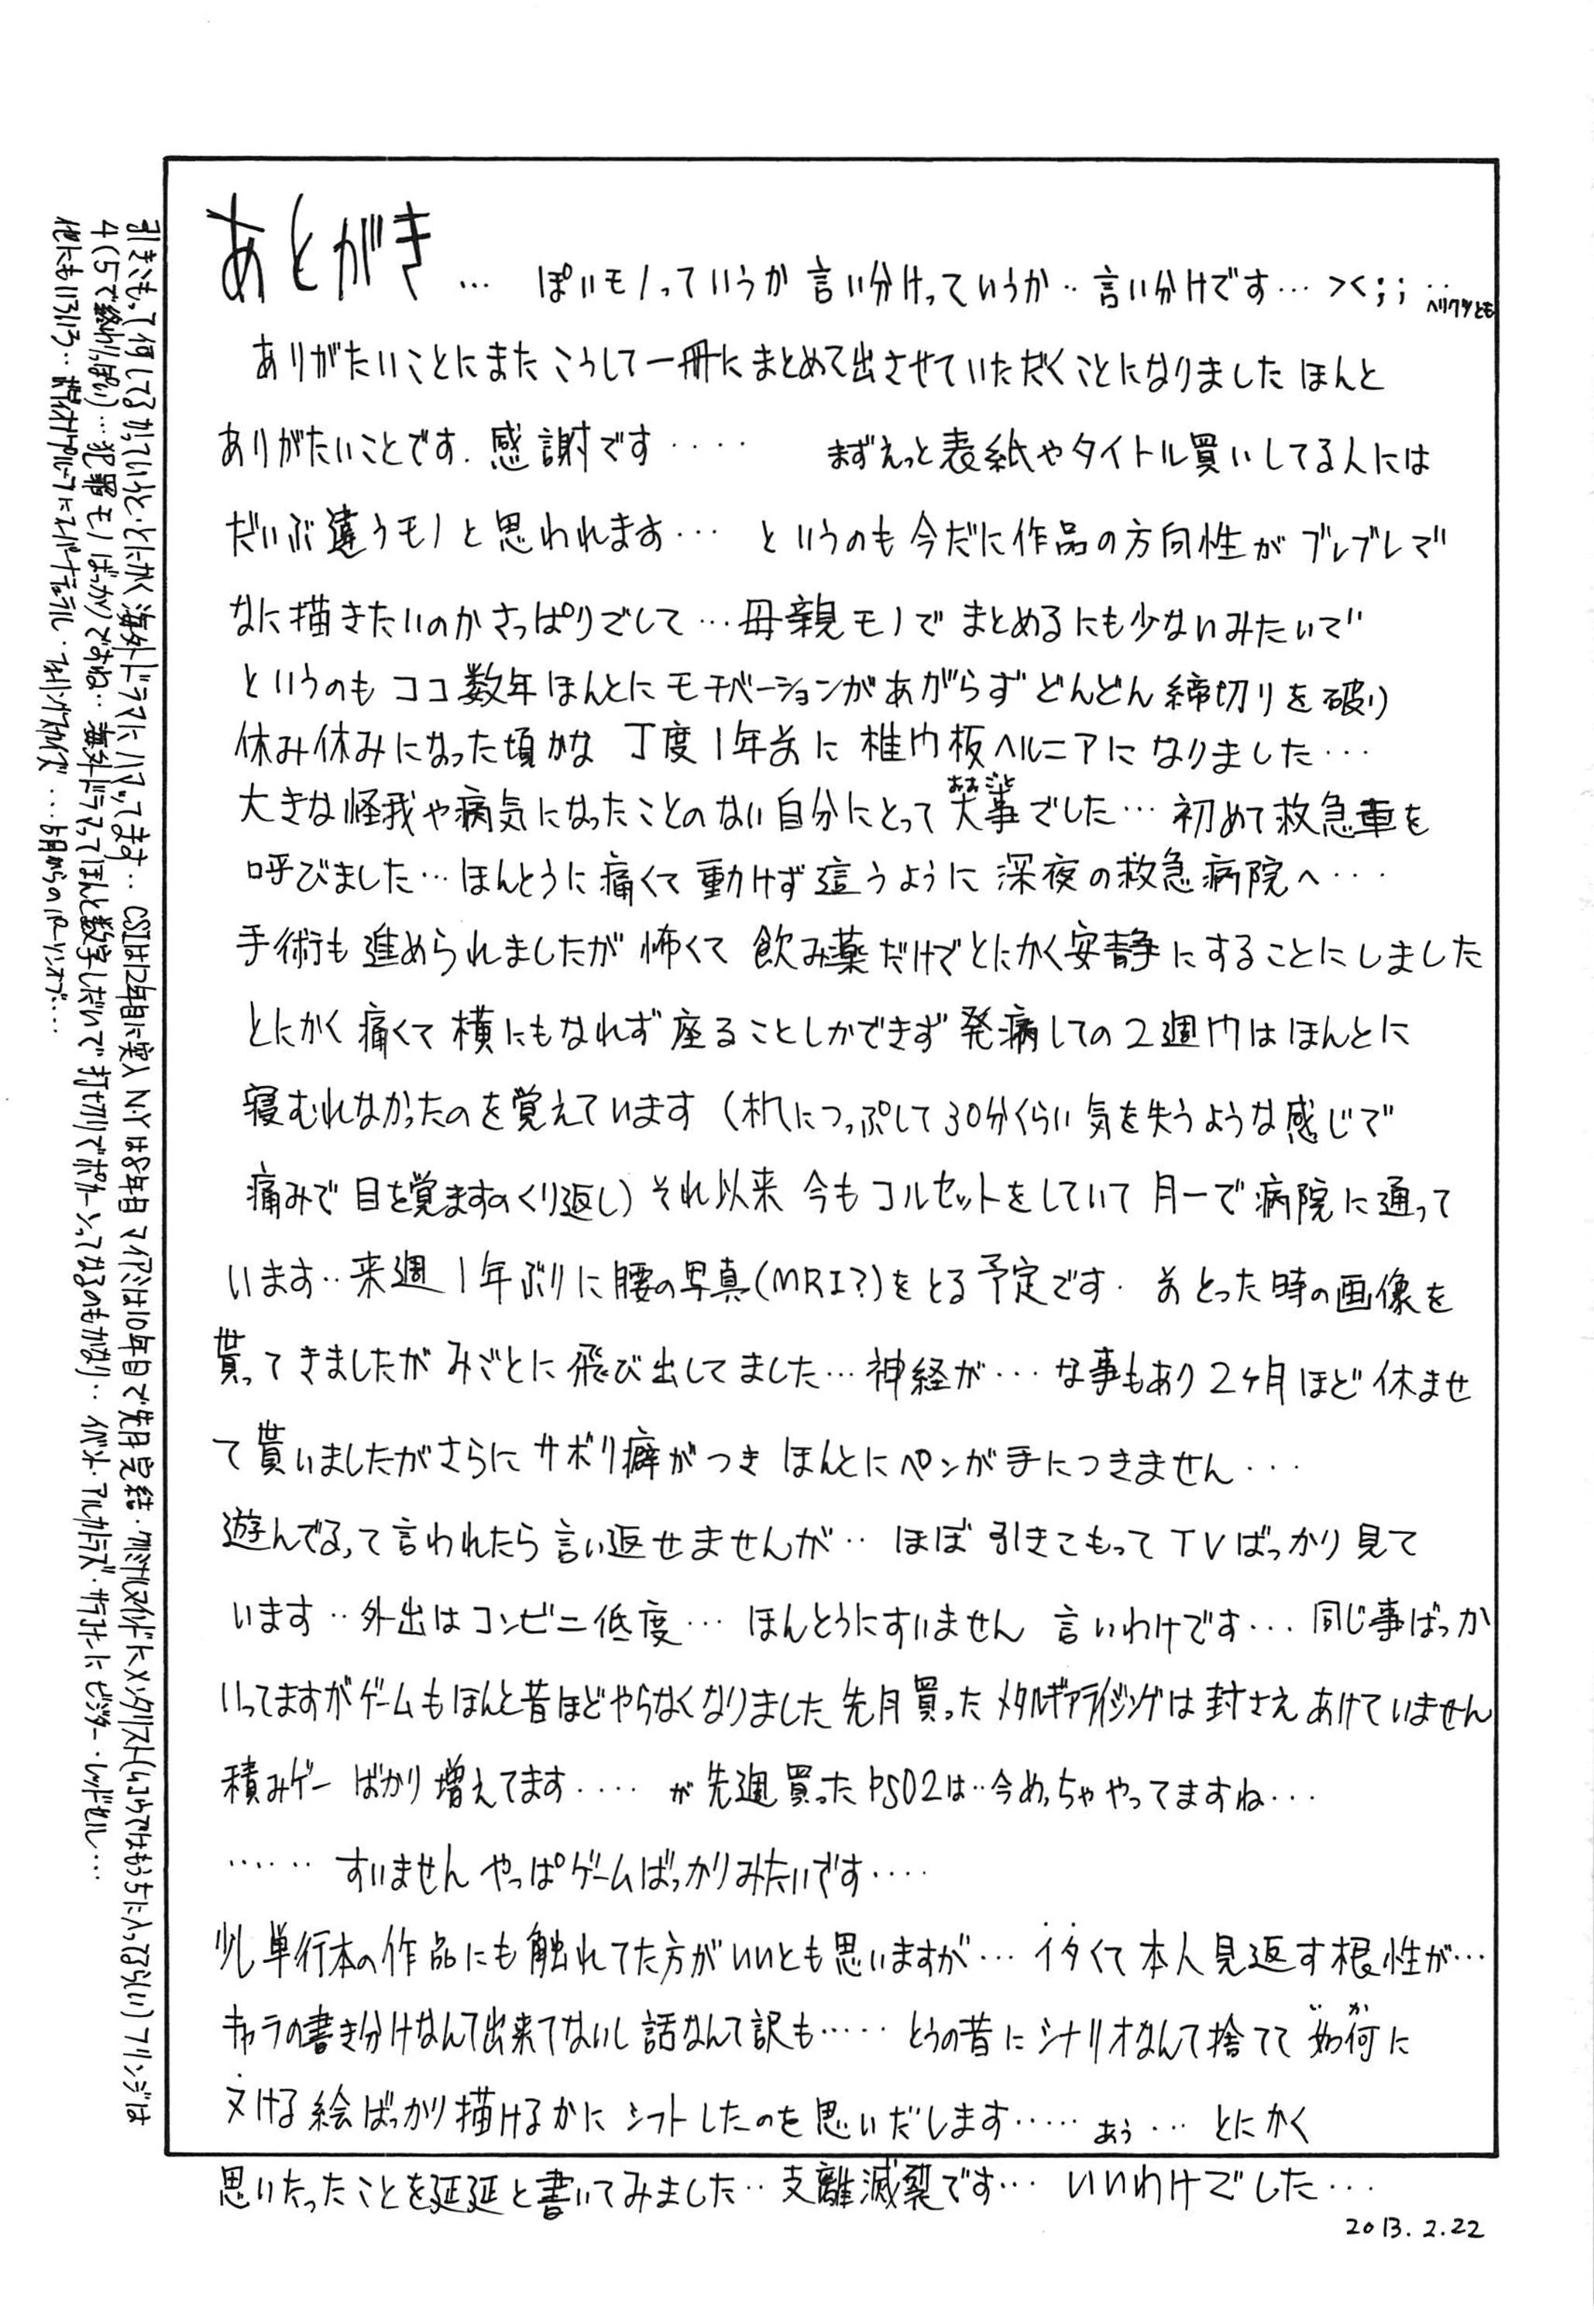 あとがき… ぽいモノっていうか言い分けっていうか‥言い分けです…><;;‥ヘリクツとも
ありがたいことにまたこうして一冊にまとめて出させていただくことになりましたほんと
ありがたいことです.感謝です‥‥ まずえっと表紙やタイトル買いしてる人には
だいぶ違うモノと思われます… というのも今だに作品の方向性がブレブレで
なに描きたいのかさっぱりでして…母親モノでまとめるにも少ないみたいで
というのもココ数年ほんとにモチベーションがあがらずどんどん締切りを破り
休み休みになった頃かな 丁度1年前に椎間板ヘルニアになりました…
大きな怪我や病気になったことのない自分にとって大事でした…初めて救急車を
おおごと
呼びました…ほんとうに痛くて動けず這うように深夜の救急病院へ…
手術も進められましたが怖くて飲み薬だけでとにかく安静にすることにしました
とにかく痛くて横にもなれず座ることしかできず発病しての2週間はほんとに
寝むれなかったのを覚えています(机につっぷして30分くらい気を失うような感じで
痛みで目を覚ますのくり返し)それ以来今もコルセットをしていて月一で病院に通って
います‥来週1年ぶりに腰の写真(MRI?)をとる予定です.前とった時の画像を
貰ってきましたがみごとに飛び出してました…神経が…な事もあり2ヶ月ほど休ませ
て貰いましたがさらにサボり癖がつきほんとにペンが手につきません…
遊んでるって言われたら言い返せませんが‥ほぼ引きこもってTVばっかり見て
います‥外出はコンビニ低度…ほんとうにすいません 言いわけです…同じ事ばっか
いってますがゲームもほんと昔ほどやらなくなりました先月買ったメタルギアライジングは封さえあけていません
積みゲーばかり増えてます‥‥が先週買ったPSO2は‥今めっちゃやってますね…
……すいませんやっぱゲームばっかりみたいです‥‥
少し単行本の作品にも触れてた方がいいとも思いますが…イタくて本人見返す根性が…
キャラの書き分けなんて出来てないし話なんて訳も……とうの昔にシナリオなんて捨てて如何に
いか
ヌける絵ばっかり描けるかにシフトしたのを思いだします……あぅ…とにかく
思いたったことを延延と書いてみました‥支離滅裂です…いいわけでした…
2013.2.22
引きこもって何してるかっていうと・とにかく海外ドラマにハマッてます‥CSIは12年目に突入N.Yは8年目マイアミは10年目で先月完結・クリミナルマインドにメンタリスト(むこうではもう5に入ってるらしい)フリンジは
4(5で終わりっぽい)…犯罪モノばっかりですね‥海外ドラマってほんと数字しだいで打ち切りでポカーンってなるのもかなり‥イベント・アルカトラズ・サラコナーに ビジター・レッドセル…
他にもいろいろ‥ボディオブプルーフにスーパーナチュラル・フォーリングスカイズ…5月からのパーソンオブ…